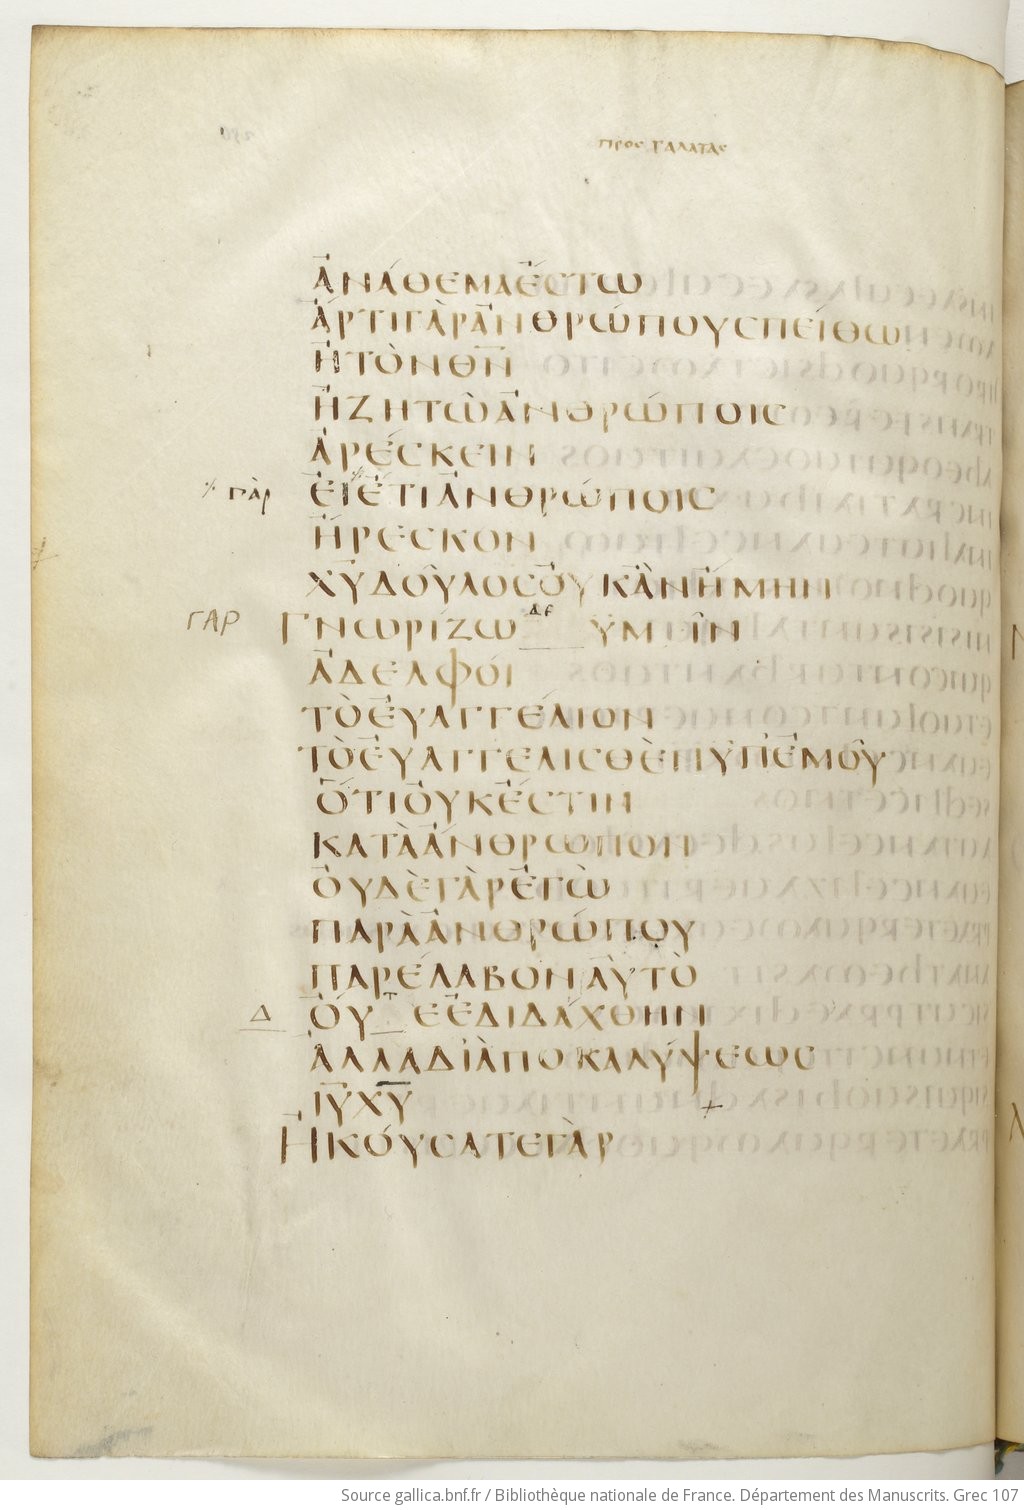 ΠΡΟΣ ΓΑΛΑΤΑΣ
ἈΝΆΘΕΜΑἜСΤΩ
ἌΡΤΙΓᾺΡἈΝΘΡΏΠΟΥСΠΕΊΘΩ
ἪΤῸΝΘ̅Ν̅
ἪΖΗΤΩ͂ἈΝΘΡΏΠΟΙС
ἈΡΈСΚΕΙΝ
ΓᾺΡ ἘΙἜΤΙἈΝΘΡΏΠΟΙС
ἬΡΕСΚΟΝ
Χ̅Υ̅ΔΟΥ͂ΛΟСΟΥΚἊΝἬΜΗΝ
ΓΑΡ ΓΝΩΡΊΖΩ ΔΕ ὙΜΙ͂Ν
ἈΔΕΛΦΟΊ
ΤῸἘΥΑΓΓΈΛΙΟΝ
ΤῸἘΥΑΓΓΕΛΙСΘῈΝὙΠἘΜΟΥ͂
ὍΤΙΟΥΚἜСΤΙΝ
ΚΑΤᾺἌΝΘΡΩΠΟΝ
ΟΥΔῈΓᾺΡἘΓῺ
ΠΑΡᾺἈΝΘΡΏΠΟΥ
ΠΑΡΈΛΑΒΟΝΑΥΤῸ
Δ ΟΥΤΕἘΔΙΔΆΧΘΗΝ
ἈΛΛΑΔΙἈΠΟΚΑΛΎΨΕΩС
Ι̅Υ̅Χ̅Υ̅
ἨΚΟΎСΑΤΕΓᾺΡ
Source gallica.bnf.fr / Bibliothèque nationale de France. Département des Manuscrits. Grec 107